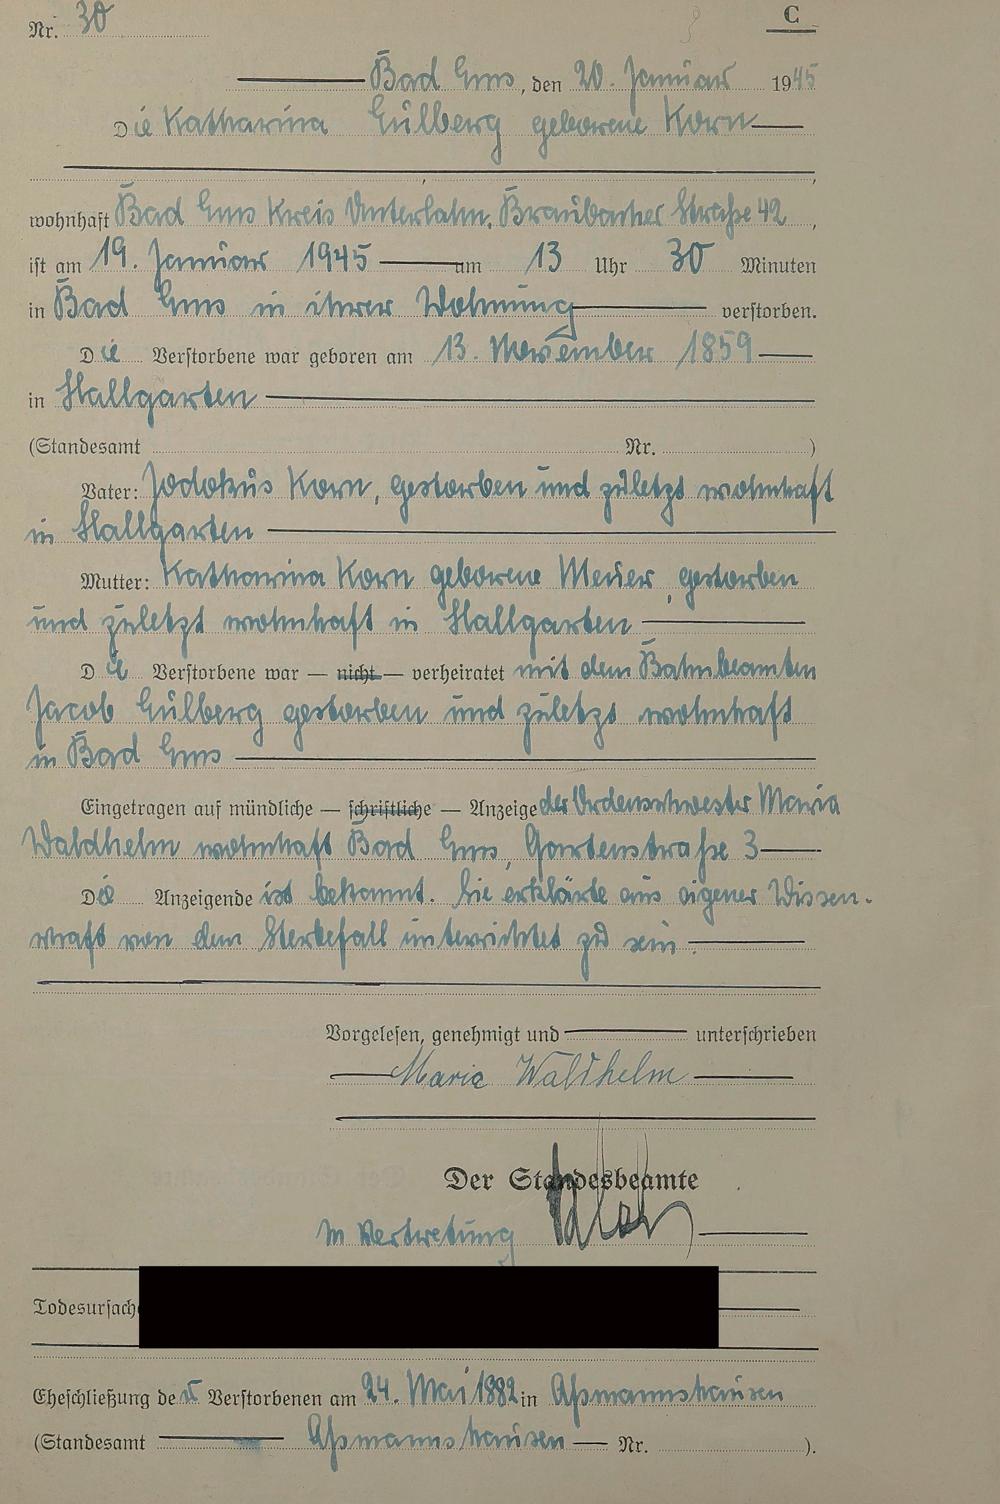 Nr. 30
C
Bad Ems, den 20. Januar 1945
Die Katharina Gülberg geborene Korn
wohnhaft Bad Ems Kreis Unterlahn, Braubacher Straße 42,
ist am 19. Januar 1945 um 13 Uhr 30 Minuten
in Bad Ems in ihrer Wohnung verstorben.
Die Verstorbene war geboren am 13. November 1859
in Hallgarten
(Standesamt Nr. )
Vater: Jodokus Korn, gestorben und zuletzt wohnhaft
in Hallgarten
Mutter: Katharina Korn geborene Meuer, gestorben
und zuletzt wohnhaft in Hallgarten
Die Verstorbene war — nicht — verheiratet mit dem Bahnbeamten
Jacob Gülberg gestorben und zuletzt wohnhaft
in Bad Ems
Eingetragen auf mündliche — schriftliche — Anzeige der Ordensschwester Maria
Waldhelm wohnhaft Bad Ems, Gartenstraße 3
Die Anzeigende ist bekannt. Sie erklärte aus eigener Wissen-
schaft von dem Sterbefall unterrichtet zu sein.
Vorgelesen, genehmigt und unterschrieben
Maria Waldhelm
Der Standesbeamte
In Vertretung
Todesursache
Eheschließung der Verstorbenen am 24. Mai 1882 in Aßmannshausen
(Standesamt Aßmannshausen Nr. ).